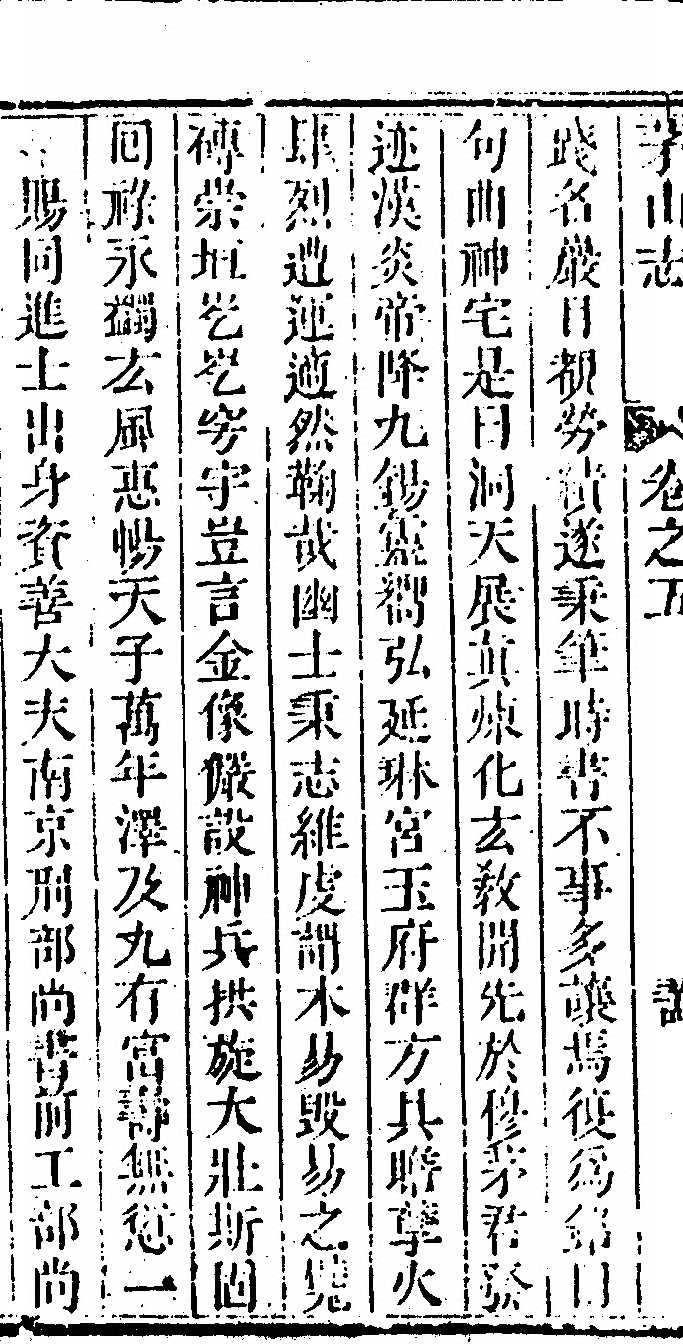 茅山志 卷之五
踐名嚴目覩勞績遂秉筆時書不事多讓焉復為銘曰
句曲神宅是曰洞天展真煉化玄教開先於穆茅君發
迹漢炎帝降九錫寵嚮弘延琳宮玉府群方具聯孽火
肆烈遭運適然鞠哉幽士秉志維虔謂木易毀易之甓
磚崇垣屹屹穹宇豈言金像儼設神兵拱旋大壯斯固
回祿永蠲玄風惠暢天子萬年澤及九有富壽無愆一
賜同進士出身資善大夫南京刑部尚書前工部尚